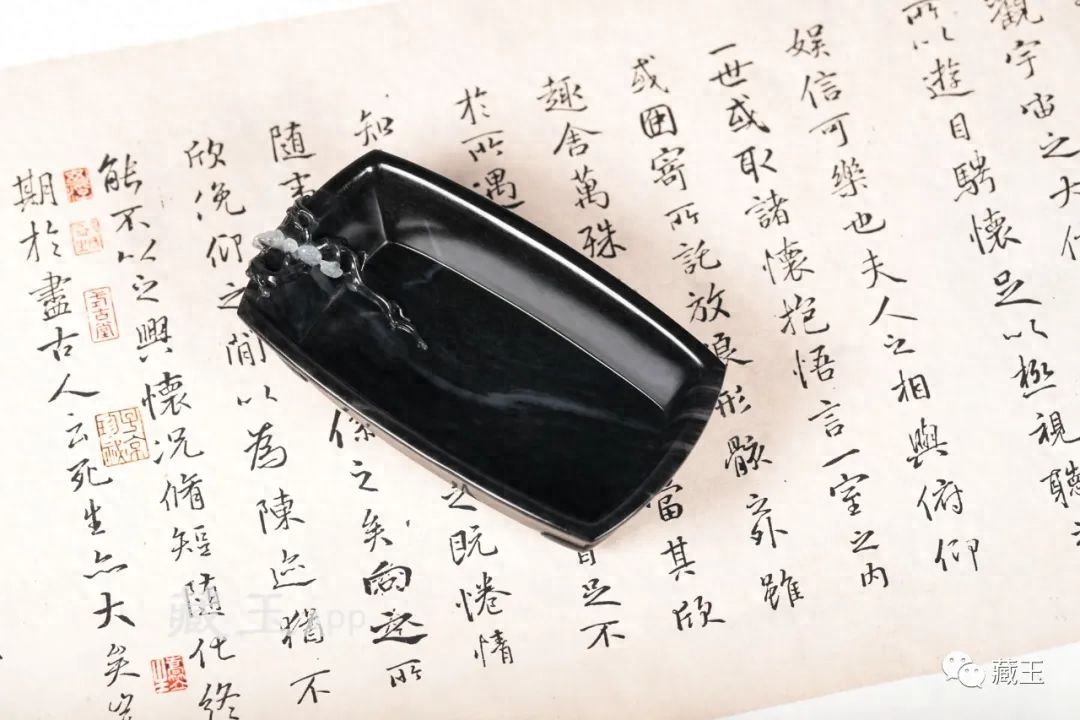 觀宇宙之大仰
所以遊目騁懷足以極視聽之
娛信可樂也夫人之相與俯仰
一世或取諸懷抱悟言一室之內
或因寄所託放浪形骸之外雖
趣舍萬殊 當其欣
於所遇 足不
知 之既惓情
随事 係之矣向之所
欣俛仰之間以為陳迹猶不
能不以之興懷況脩短随化終
期於盡古人云死生亦大矣豈
藏玉App
藏玉